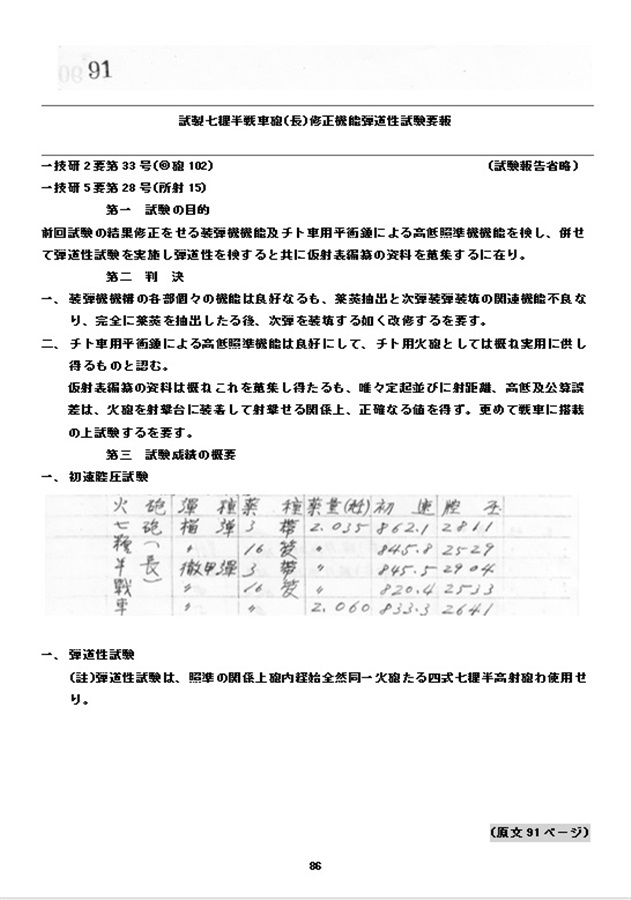 91
試製七糎半戦車砲(長)修正機能弾道性試験要報
一技研2要第33号(◎砲102)　(試験報告省略)
一技研5要第28号(所射15)
第一　試験の目的
前回試験の結果修正をせる装弾機機能及チト車用平衡錘による高低照準機機能を検し、併せ
て弾道性試験を実施し弾道性を検すると共に仮射表編纂の資料を蒐集するに在り。
第二　判　決
一、装弾機機構の各部個々の機能は良好なるも、薬莢抽出と次弾装弾装填の関連機能不良な
り、完全に薬莢を抽出したる後、次弾を装填する如く改修するを要す。
二、チト車用平衡錘による高低照準機能は良好にして、チト用火砲としては概ね実用に供し
得るものと認む。
仮射表編纂の資料は概ねこれを蒐集し得たるも、唯々定起並びに射距離、高低及公算誤
差は、火砲を射撃台に装着して射撃せる関係上、正確なる値を得ず。更めて戦車に搭載
の上試験するを要す。
第三　試験成績の概要
一、初速膛圧試験
火砲 彈種 薬種 薬量(瓩) 初速 膛圧
七糎半戰車砲(長) 榴彈 3 帶 2.035 862.1 2811
〃 16 葵 〃 845.8 2529
徹甲彈 3 帶 〃 845.5 2904
〃 16 葵 〃 820.4 2533
〃 〃 2.060 833.3 2641
一、弾道性試験
(註)弾道性試験は、照準の関係上砲内経始全然同一火砲たる四式七糎半高射砲わ使用せ
り。
(原文91ページ)
86